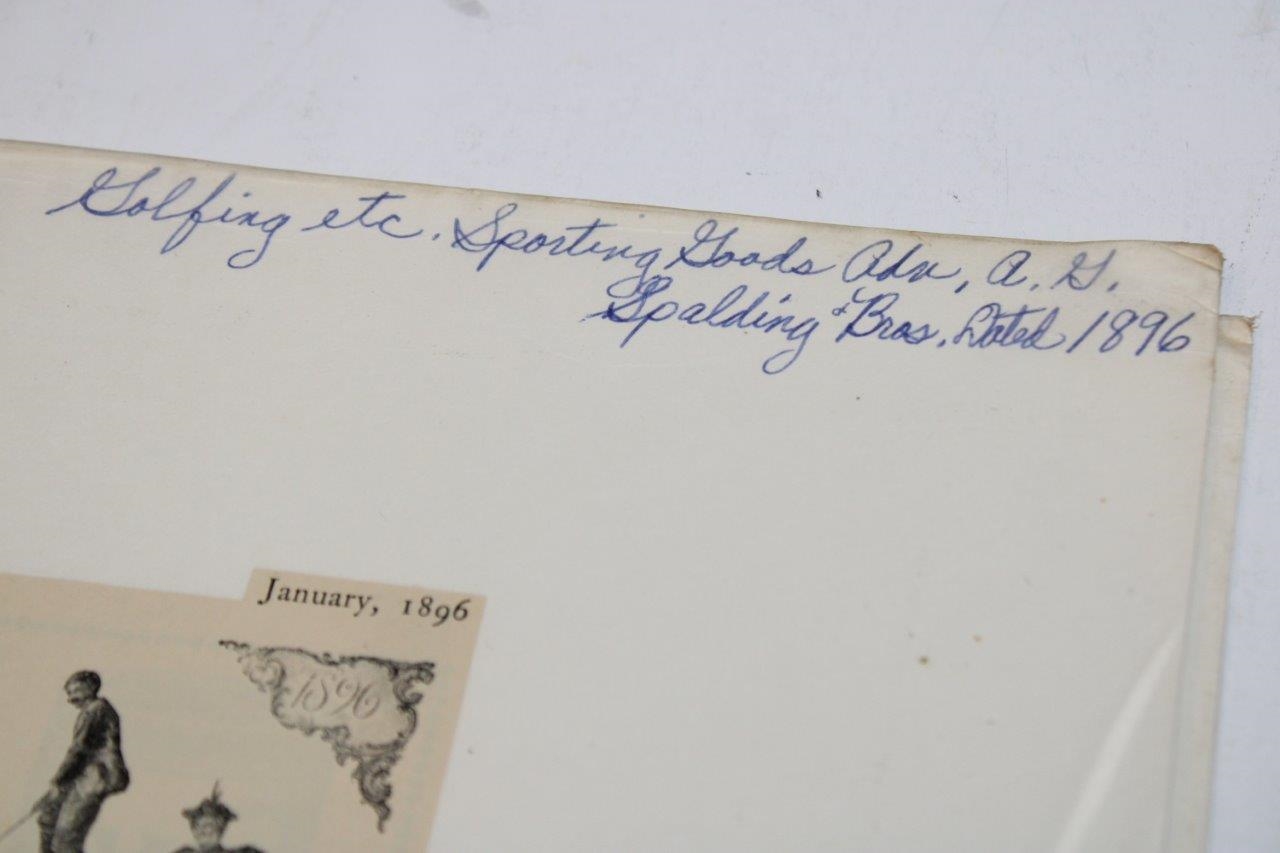 Golfing etc. Sporting Goods Adv, A. G.
Spalding & Bros. Dated 1896
January, 1896
1896